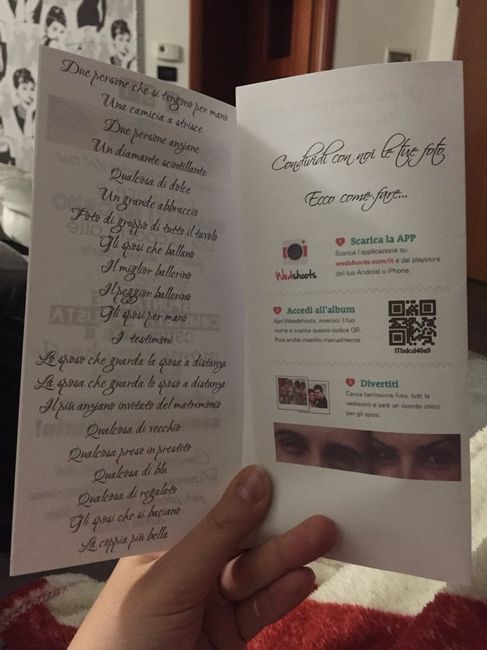 Due persone che si tengono per mano
Una camicia a strisce
Due persone anziane
Un diamante scintillante
Qualcosa di dolce
Un grande abbraccio
Foto di gruppo di tutto il tavolo
Gli sposi che ballano
Il miglior ballerino
Il peggior ballerino
Gli sposi per mano
I testimoni
Lo sposo che guarda la sposa a distanza
La sposa che guarda lo sposo a distanza
Il più anziano invitato del matrimonio
Qualcosa di vecchio
Qualcosa preso in prestito
Qualcosa di blu
Qualcosa di regalato
Gli sposi che si baciano
La coppia più bella
Condividi con noi le tue foto
Ecco come fare...
Wedshoots
1 Scarica la APP
Scarica l'applicazione su
wedshoots.com/it e dal playstore
del tuo Android o iPhone.
2 Accedi all'album
Apri Wedshoots, inserisci il tuo
nome e scansa questo codice QR.
Puoi anche inserirlo manualmente.
ITbdcd40a9
3 Divertiti
Carica tantissime foto, tutti le
vedranno e sarà un ricordo unico
per gli sposi.